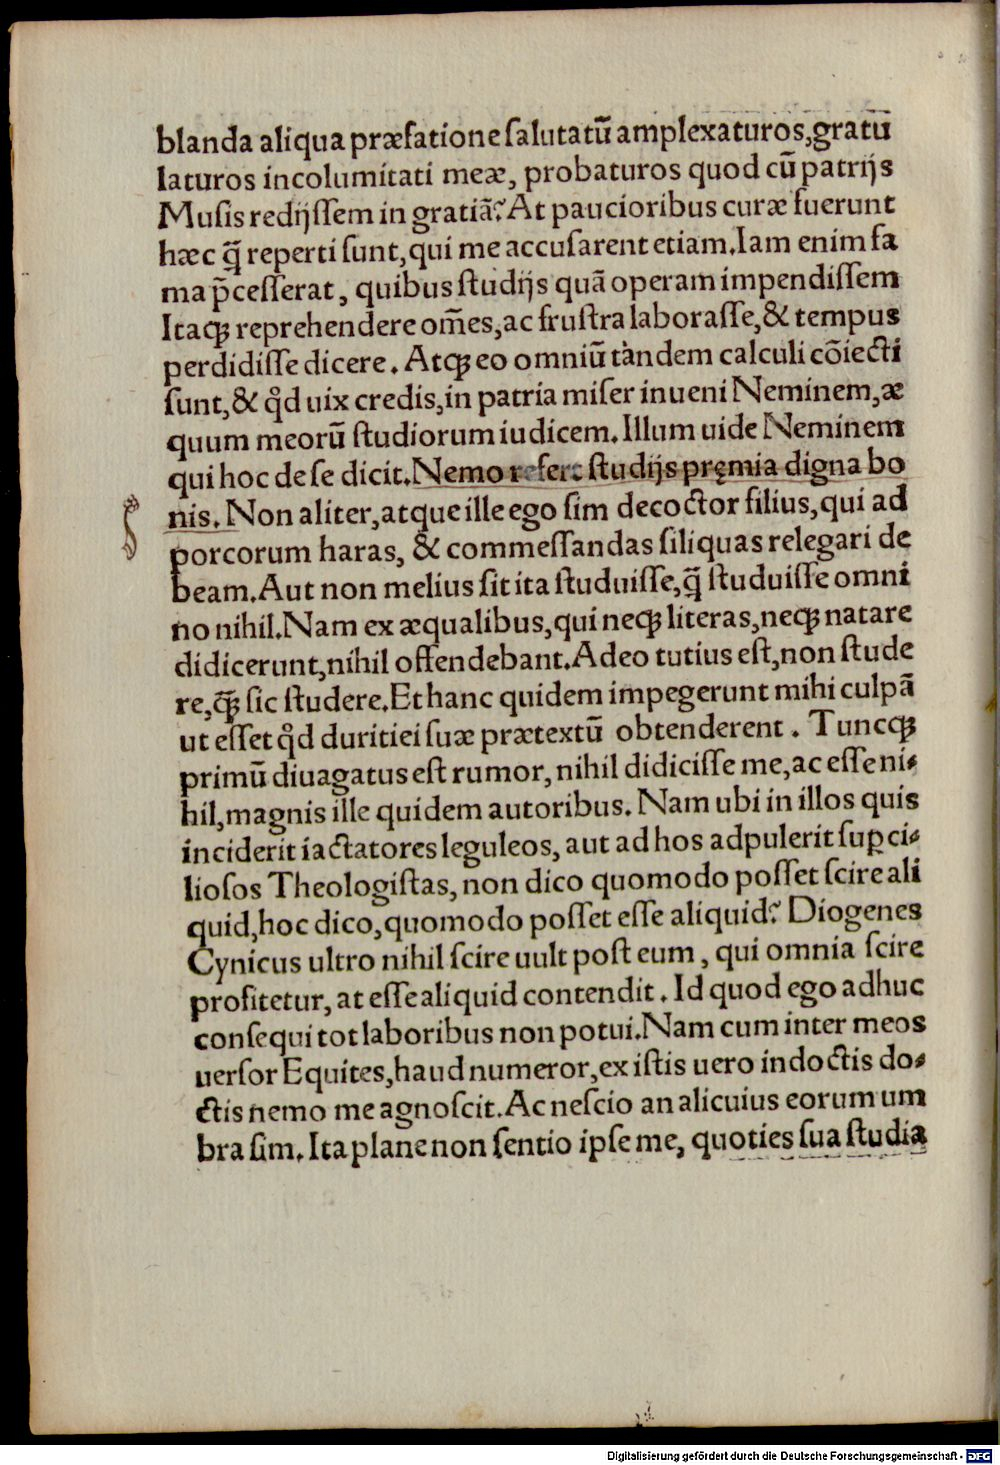 blanda aliqua præfatione salutatũ amplexaturos, gratu
laturos incolumitati meæ, probaturos quod cũ patrijs
Musis redijssem in gratiã? At paucioribus curæ fuerunt
hæc q̃ reperti sunt, qui me accusarent etiam. Iam enim fa
ma p̃cesserat, quibus studijs quã operam impendissem
Itaqꝫ reprehendere om̃es, ac frustra laborasse, & tempus
perdidisse dicere. Atqꝫ eo omniũ tàndem calculi cõiecti
sunt, & qd̃ uix credis, in patria miser inueni Neminem, æ
quum meorũ studiorum iudicem. Illum uide Neminem
qui hoc de se dicit. Nemo refert studijs pręmia digna bo
nis. Non aliter, atque ille ego sim decoctor filius, qui ad
porcorum haras, & commessandas siliquas relegari de
beam. Aut non melius sit ita studuisse, q̃ studuisse omni
no nihil. Nam ex æqualibus, qui neqꝫ literas, neqꝫ natare
didicerunt, nihil offendebant. Adeo tutius est, non stude
re, q̃ꝫ sic studere. Et hanc quidem impegerunt mihi culpã
ut esset qd̃ duritiei suæ prætextũ obtenderent. Tuncqꝫ
primũ diuagatus est rumor, nihil didicisse me, ac esse ni⸗
hil, magnis ille quidem autoribus. Nam ubi in illos quis
inciderit iactatores leguleos, aut ad hos adpulerit suꝑci⸗
liosos Theologistas, non dico quomodo posset scire ali
quid, hoc dico, quomodo posset esse aliquid? Diogenes
Cynicus ultro nihil scire uult post eum, qui omnia scire
profitetur, at esse aliquid contendit. Id quod ego adhuc
consequi tot laboribus non potui. Nam cum inter meos
uersor Equites, haud numeror, ex istis uero indoctis do⸗
ctis nemo me agnoscit. Ac nescio an alicuius eorum um
bra sim. Ita plane non sentio ipse me, quoties sua studia
Digitalisierung gefördert durch die Deutsche Forschungsgemeinschaft - DFG